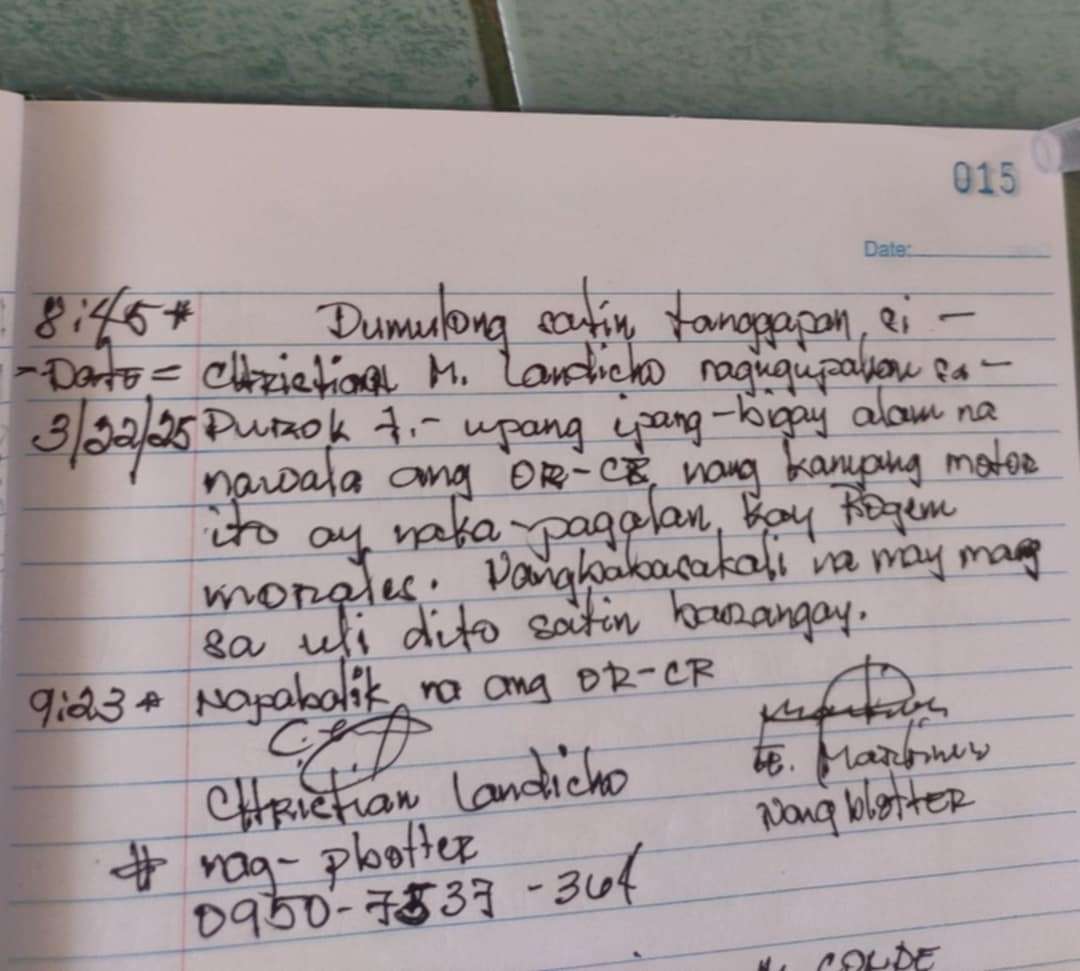 015
Date:
8:45# Dumulong satin tanggapan, si -
-Date= Christian M. Landicho nagugupahan sa -
3/22/25 Purok 7.- upang ipang-bigay alam na
nawala ang OR-CR nang kanyang motor
ito ay naka-pagalan, kay Rogem
morales. Nangbabasakali na may mang
sa uli dito satin barangay.
9:23# Napabalik na ang OR-CR
Christian Landicho
Martinez
Nang blotter
# nag- pbotter
0950-7537-364
COLDE